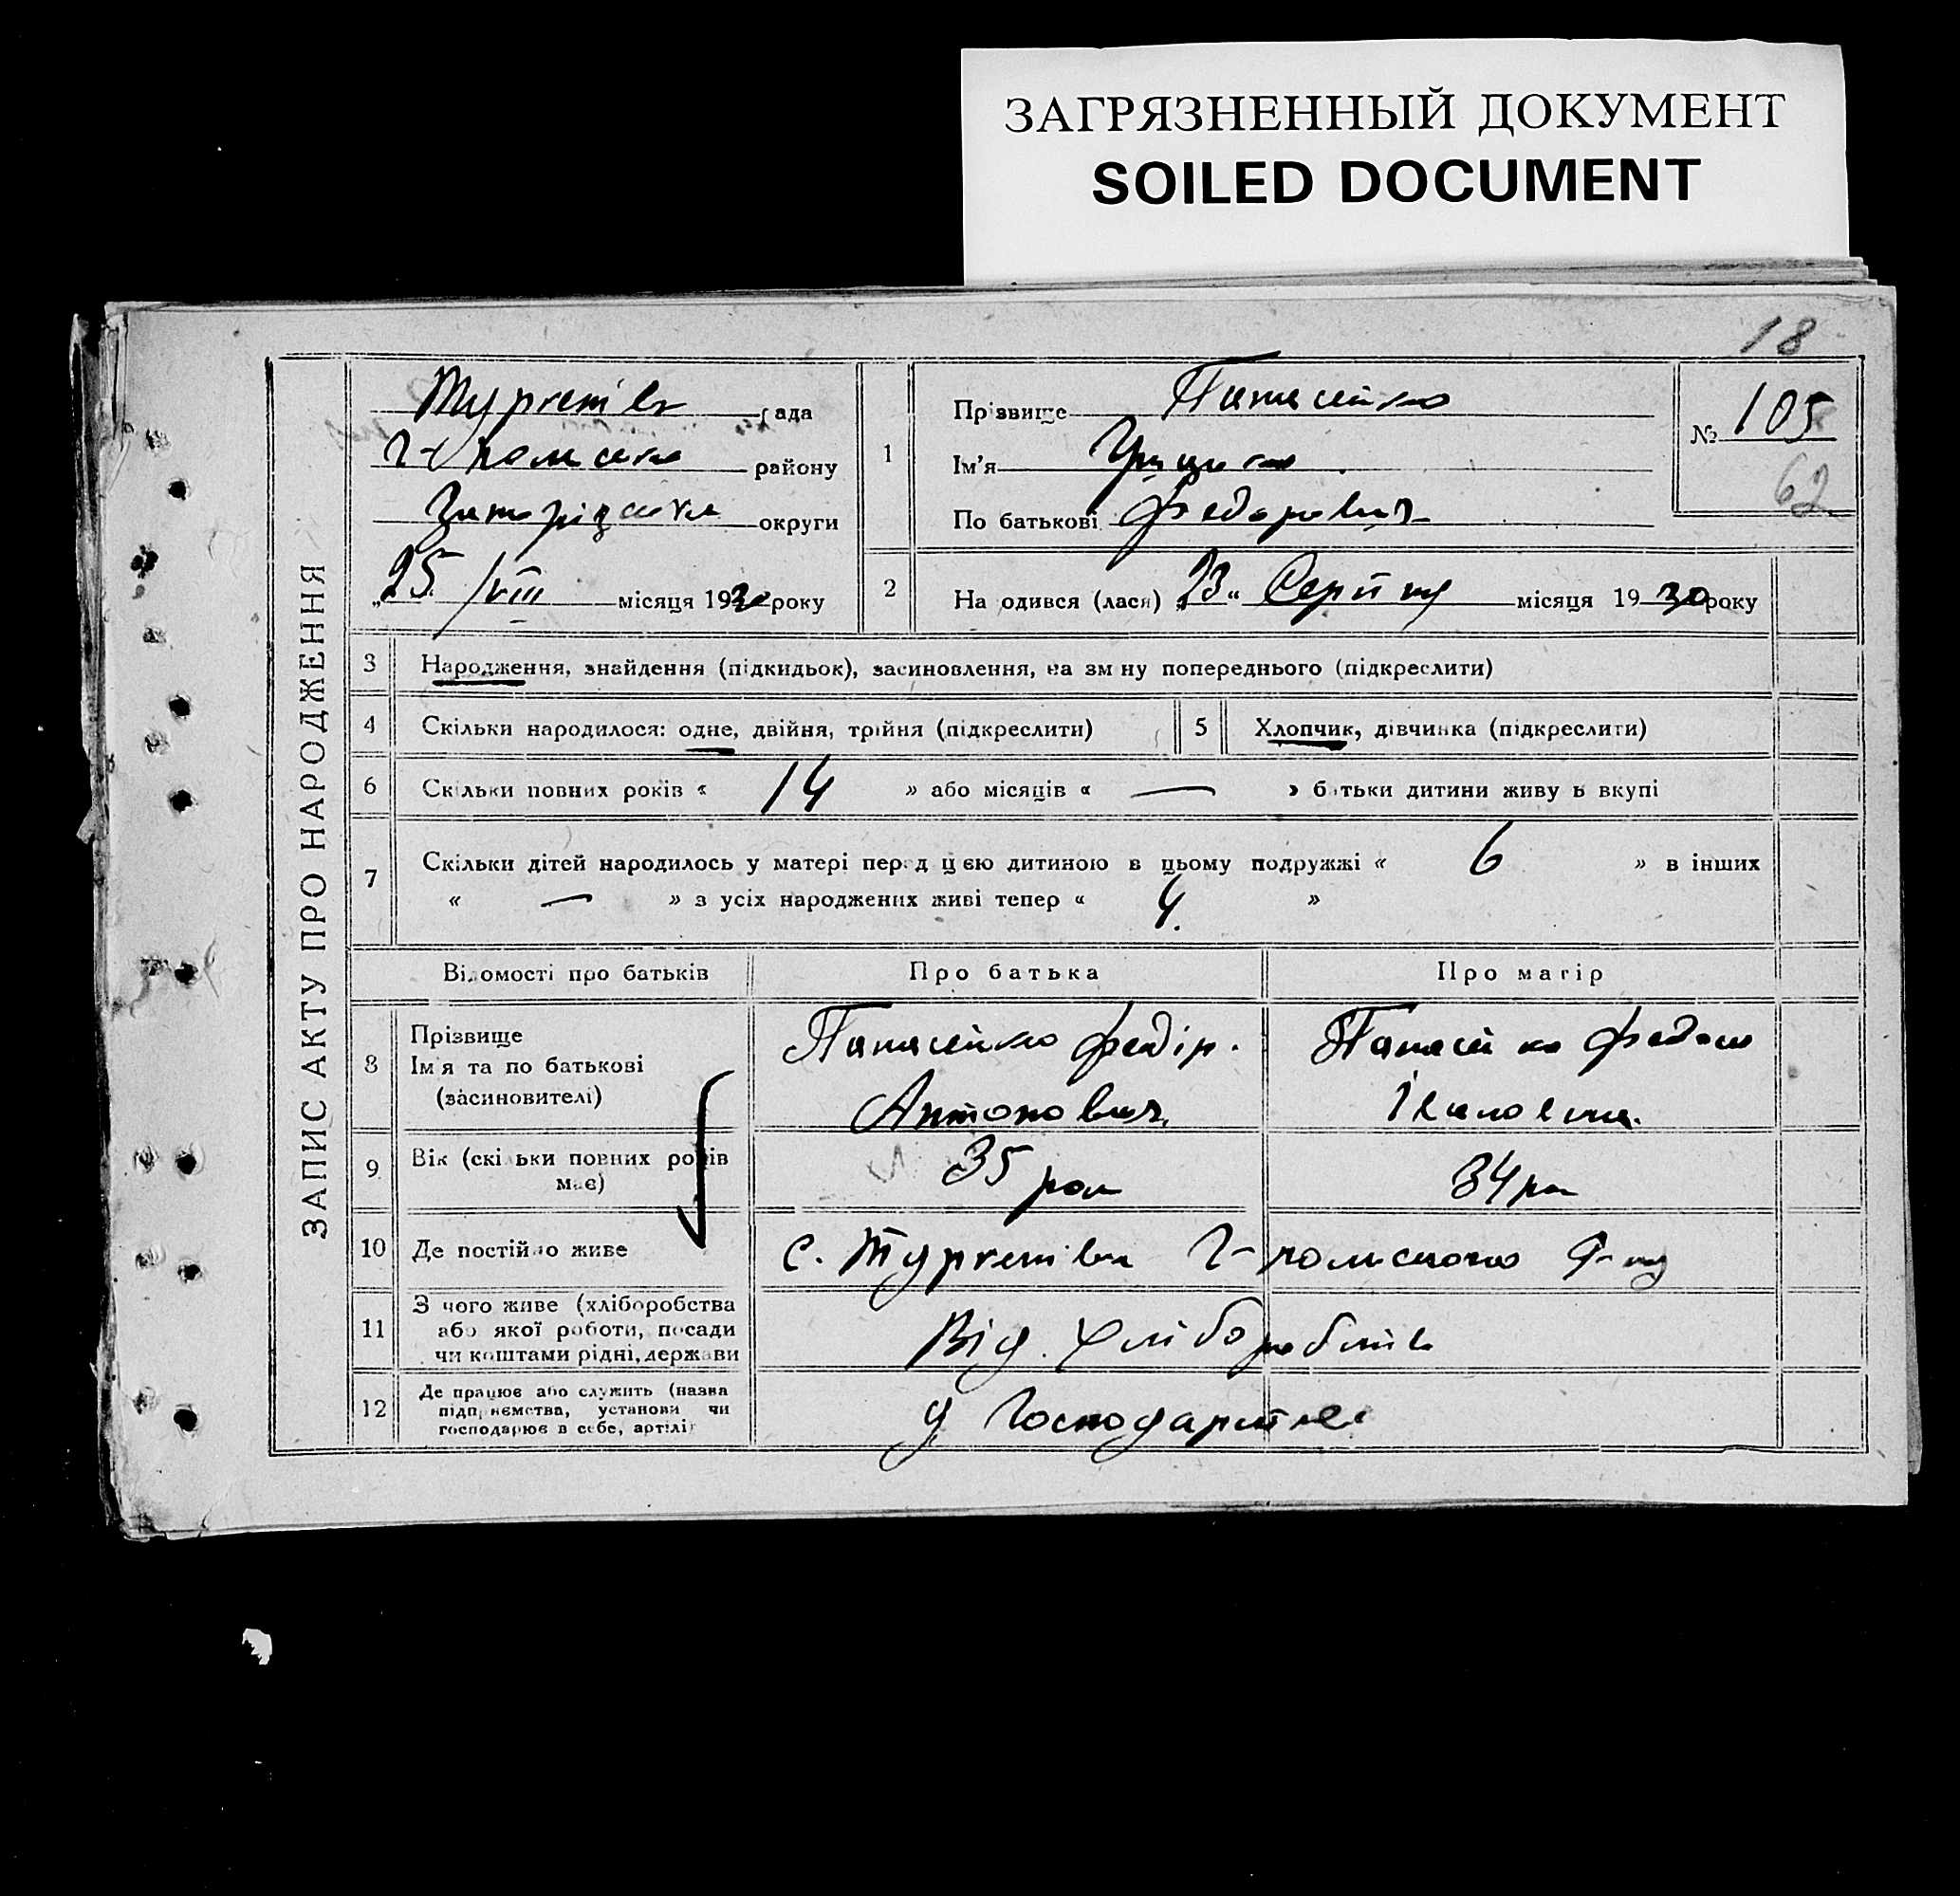 ЗАГРЯЗНЕННЫЙ ДОКУМЕНТ
SOILED DOCUMENT
18
ЗАПИС АКТУ ПРО НАРОДЖЕННЯ
рада
Г-Польська району
Запорізька округи
„25“ /VIII місяця 1930 року
1
Прізвище Панасейко
Ім'я Грицько
По батькові Федорович
№ 105
62
2
На одився (лася) „23“ Серпня місяця 1930 року
3 Народження, знайдення (підкидьок), засиновлення, на зм ну попереднього (підкреслити)
4 Скільки народилося: одне, двійня, трійня (підкреслити)
5 Хлопчик, дівчинка (підкреслити)
6 Скільки повних років « 14 » або місяців « — » батьки дитини живу ь вкупі
7 Скільки дітей народилось у матері перед цією дитиною в цьому подружжі « 6 » в інших
« — » з усіх народжених живі тепер « 4. »
Відомості про батьків
Про батька
Про матір
8 Прізвище
Ім'я та по батькові
(засиновителі)
Панасейко Федір.
Антонович.
Панасейко
Івановна.
9 Вік (скільки повних років
має)
35 рок
34 ро
10 Де постійно живе
с. Г-польского Р-ну
11 З чого живе (хліборобства
або якої роботи, посади
чи коштами рідні, держави
Від. хліборобств
12 Де працює або служить (назва
підприємства, установи чи
господарює в себе, артілі
У Господарстве